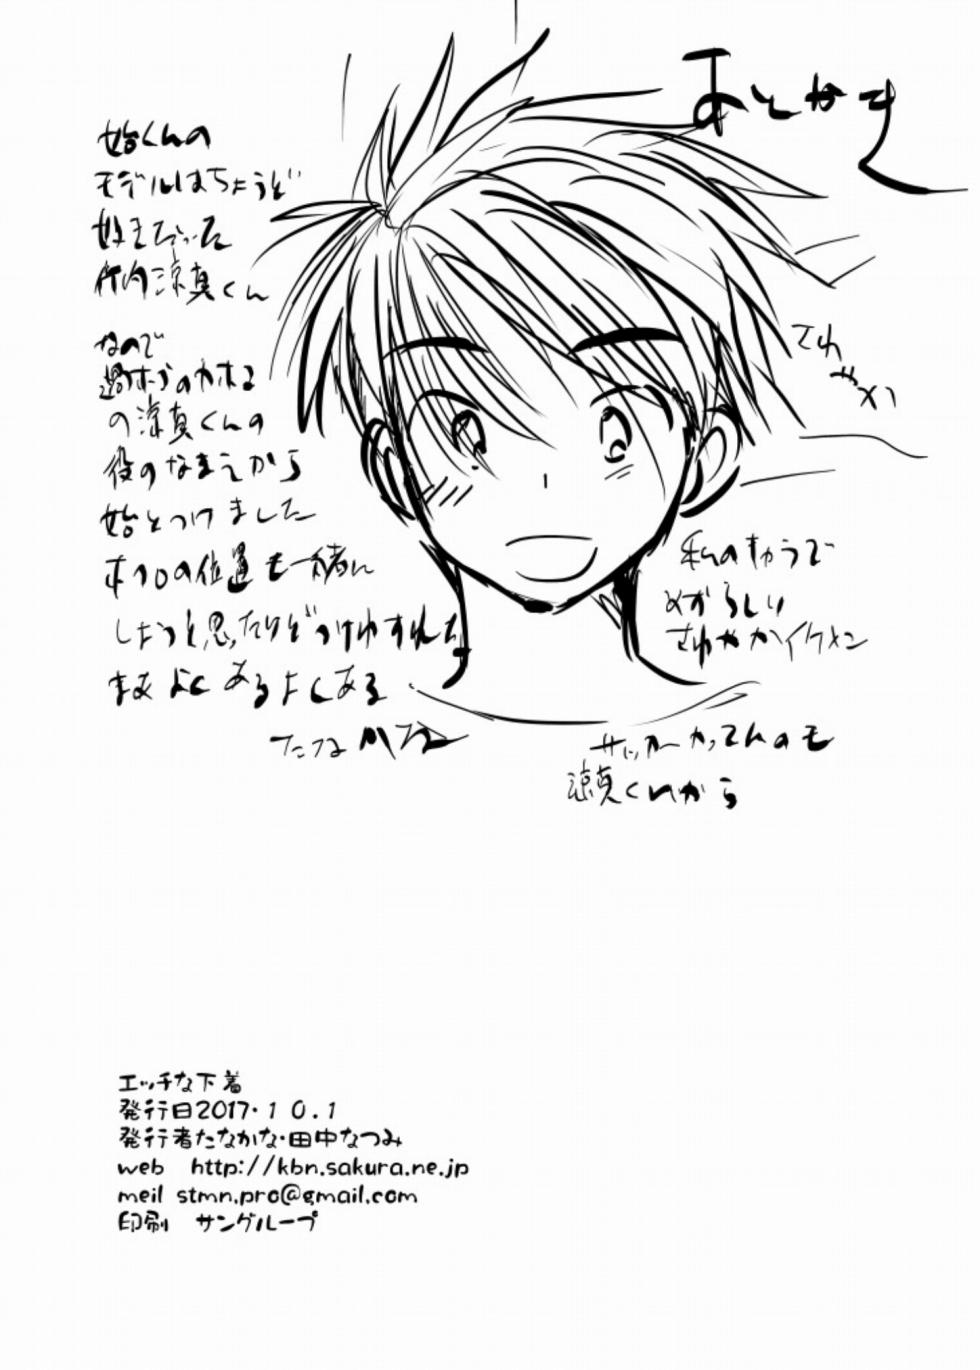 あとがき
始くんの
モデルはちょうど
好きだった
竹内涼真くん
なので
過保護のカホコ
の涼真くんの
役のなまえから
始とつけました
ホクロの位置も一緒に
しようと思ったけどつけわすれた
まあよくあるよくある
たなかな
さわ
やか
私のキャラで
めずらしい
さわやかイケメン
サッカーやってんのも
涼真くんから
エッチな下着
発行日2017.10.1
発行者たなかな・田中なつみ
web http://kbn.sakura.ne.jp
meil stmn.pro@gmail.com
印刷 サングループ